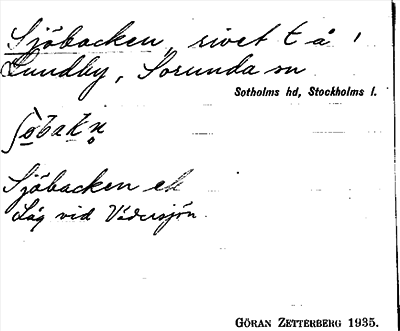 Sjöbacken, rivet t å i
Lundby, Sorunda sn
Sotholms hd, Stockholms l.
ʃöbakn̥
Sjöbacken ek
Låg vid Vädersjön.
GÖRAN ZETTERBERG 1935.